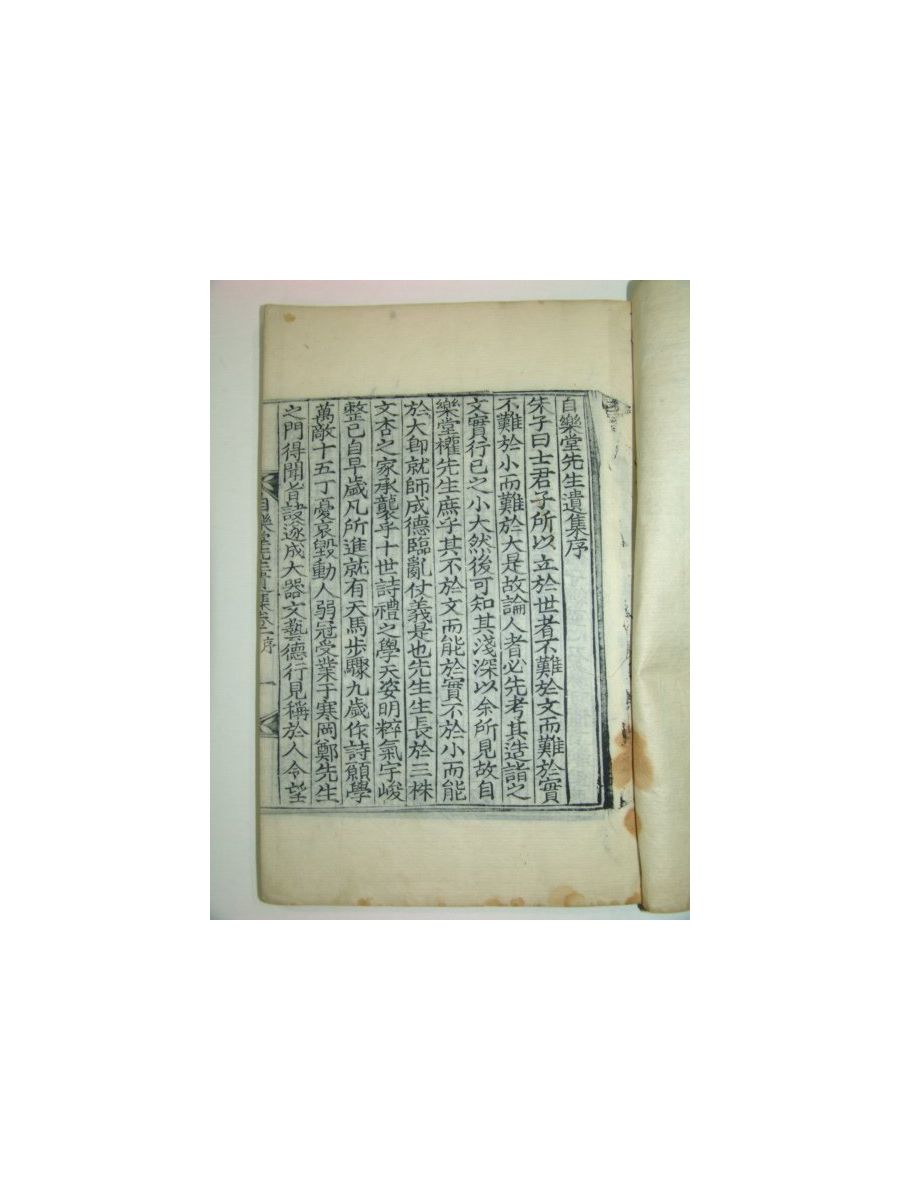 自樂堂先生遺集序
朱子曰士君子所以立於世者不難於文而難於實
不難於小而難於大是故論人者必先考其造詣之
文實行已之小大然後可知其淺深以余所見故自
樂堂權先生庶乎其不於文而能於實不於小而能
於大卽就師成德臨亂仗義是也先生生長於三株
文杏之家承襲乎十世詩禮之學天姿明粹氣宇峻
整已自早歲凡所進就有天馬步驟九歲作詩願學
萬敵十五丁憂哀毀動人弱冠受業于寒岡鄭先生
之門得聞旨諛逐成大器文藝德行見稱於人令望
自樂堂先生遺集卷一序 一